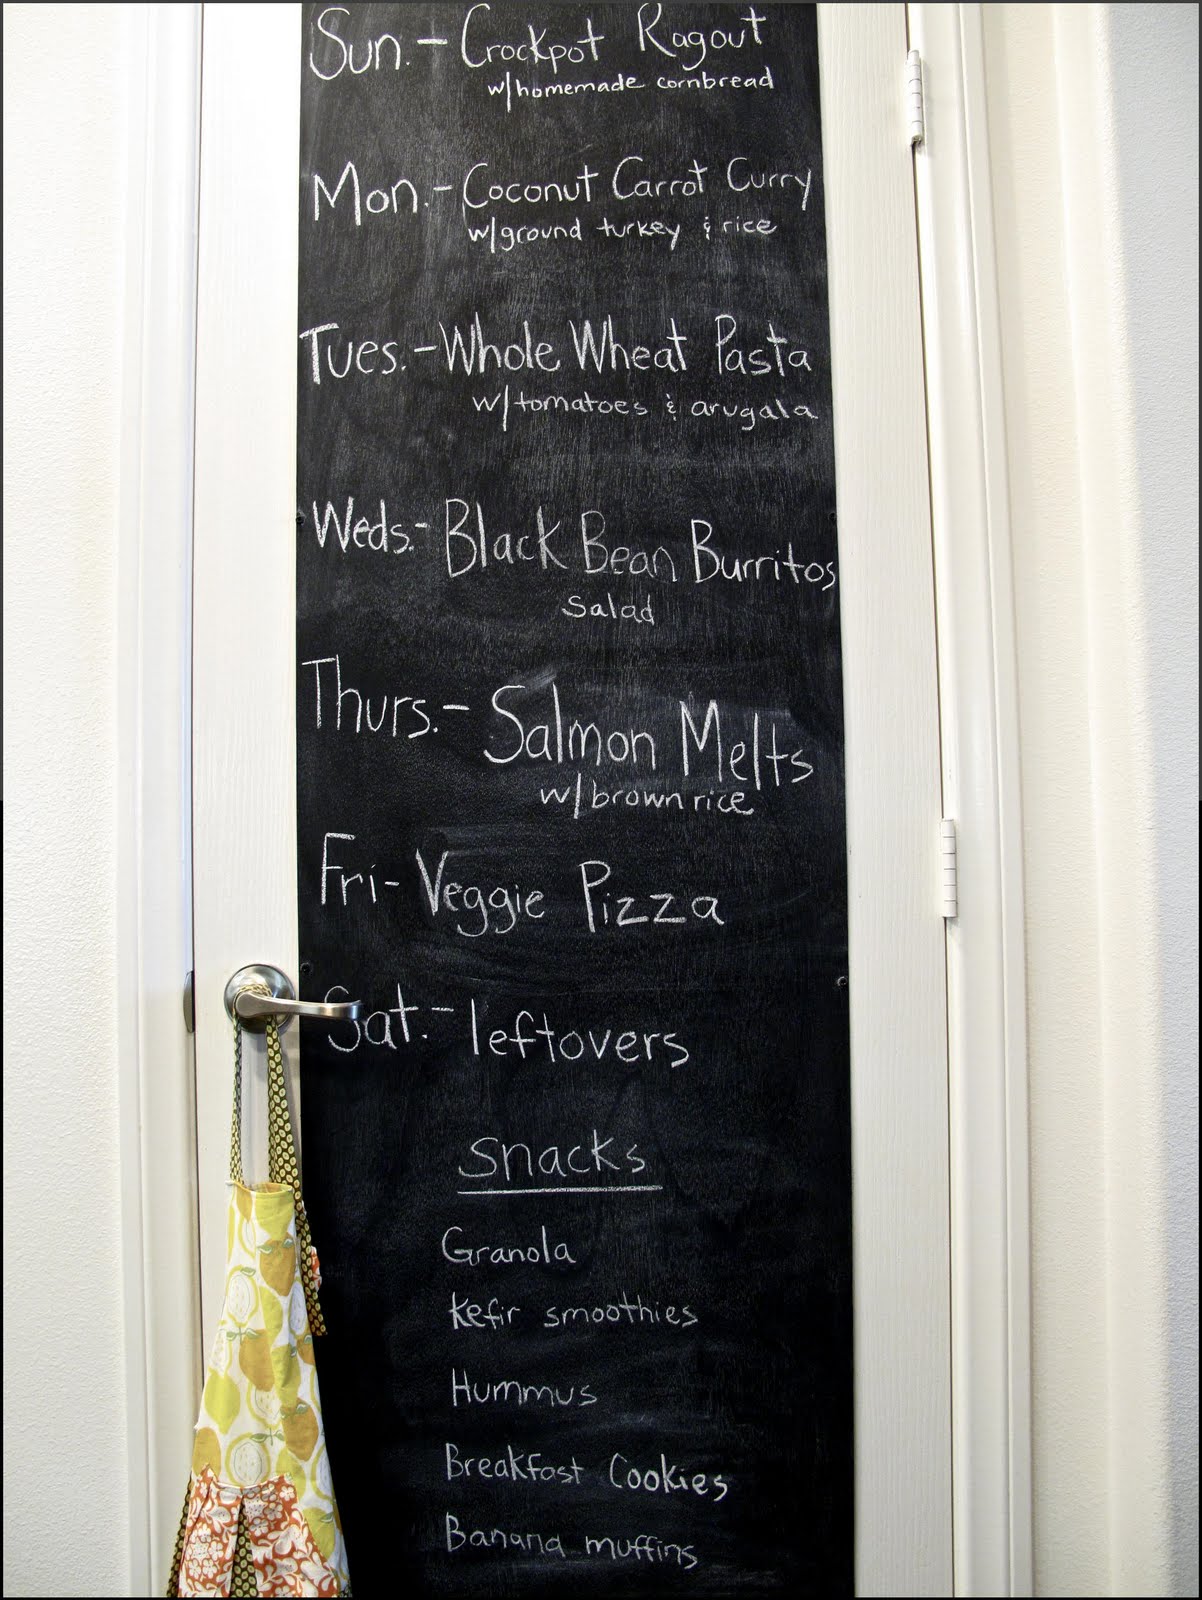 Sun. - Crockpot Ragout
w/homemade cornbread
Mon. - Coconut Carrot Curry
w/ground turkey & rice
Tues. - Whole Wheat Pasta
w/tomatoes & arugala
Weds. - Black Bean Burritos
salad
Thurs. - Salmon Melts
w/brown rice
Fri - Veggie Pizza
Sat. - leftovers
Snacks
Granola
Kefir smoothies
Hummus
Breakfast Cookies
Banana muffins